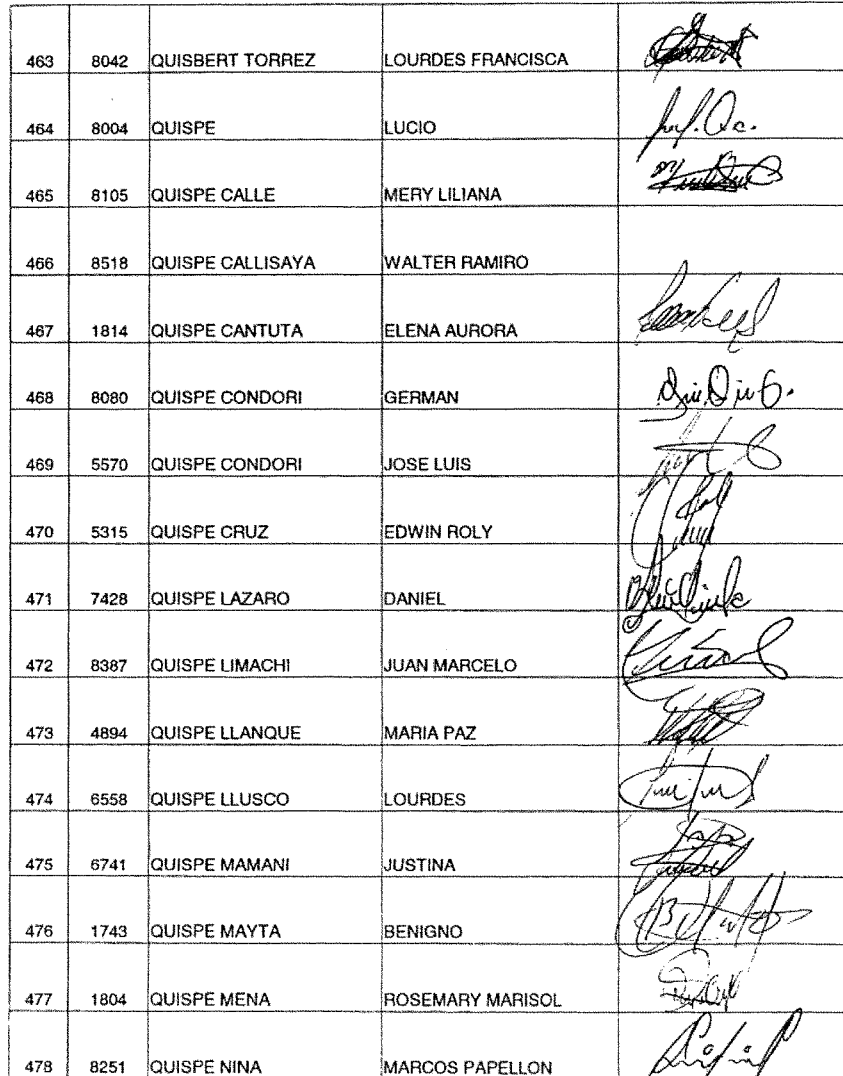 463 8042 QUISBERT TORREZ LOURDES FRANCISCA
464 8004 QUISPE LUCIO
465 8105 QUISPE CALLE MERY LILIANA
466 8518 QUISPE CALLISAYA WALTER RAMIRO
467 1814 QUISPE CANTUTA ELENA AURORA
468 8080 QUISPE CONDORI GERMAN
469 5570 QUISPE CONDORI JOSE LUIS
470 5315 QUISPE CRUZ EDWIN ROLY
471 7428 QUISPE LAZARO DANIEL
472 8387 QUISPE LIMACHI JUAN MARCELO
473 4894 QUISPE LLANQUE MARIA PAZ
474 6558 QUISPE LLUSCO LOURDES
475 6741 QUISPE MAMANI JUSTINA
476 1743 QUISPE MAYTA BENIGNO
477 1804 QUISPE MENA ROSEMARY MARISOL
478 8251 QUISPE NINA MARCOS PAPELLON